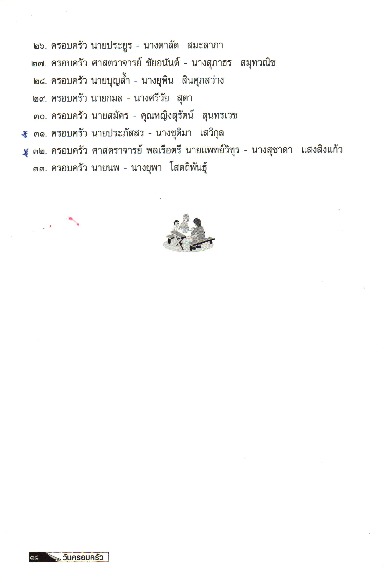 ๒๖. ครอบครัว นายประยูร - นางตาลัด สมะลาภา
๒๗. ครอบครัว ศาสตราจารย์ ชัยอนันต์ - นางสุภาธร สมุทวณิช
๒๘. ครอบครัว นายบุญล้ำ - นางยุพิน สินศุภสว่าง
๒๙. ครอบครัว นายกมล - นางศรีวัย สุดา
๓๐. ครอบครัว นายสมัคร - คุณหญิงสุรัตน์ สุนทรเวช
๓๑. ครอบครัว นายประภัสสร - นางชุติมา เสวิกุล
๓๒. ครอบครัว ศาสตราจารย์ พลเรือตรี นายแพทย์วิทุร - นางสุชาดา แสงสิงแก้ว
๓๓. ครอบครัว นายนพ - นางยุพา โสตถิพันธุ์
วันครอบครัว